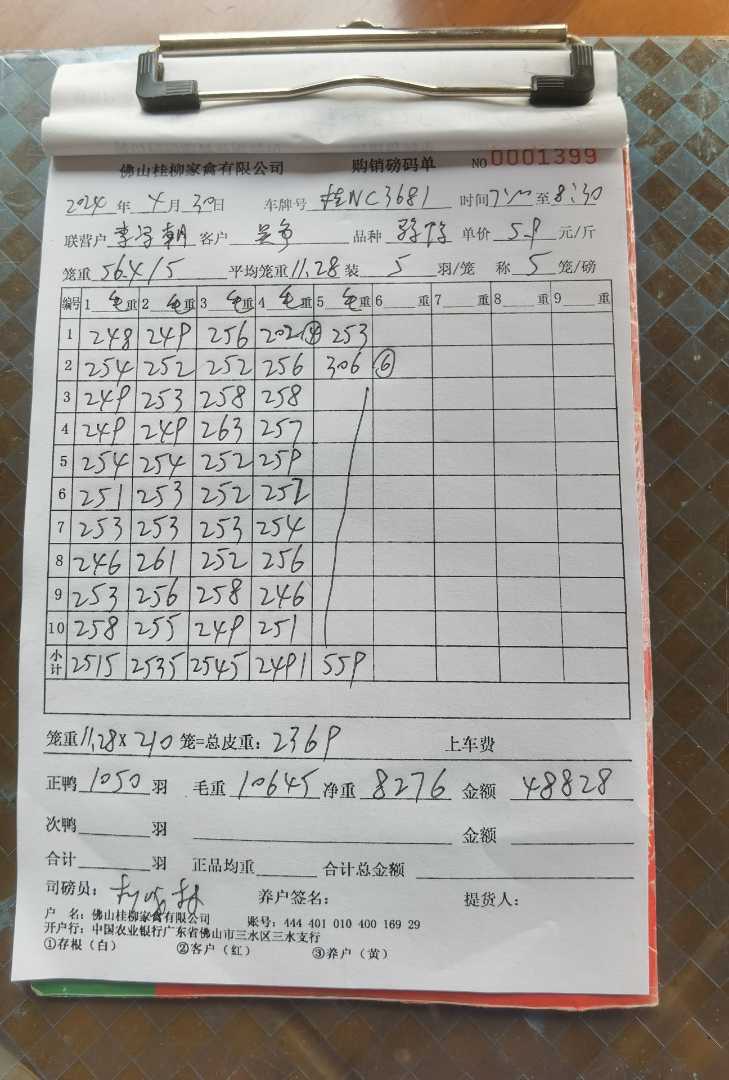 佛山桂柳家禽有限公司 购销磅码单 NO 0001399
2024年4月30日 车牌号 桂NC3681 时间7:00至8:30
联营户 客户 品种 单价 5.9 元/斤
笼重 56.4/5 平均笼重11.28装 5 羽/笼 称 5 笼/磅
编号 1 毛重 2 毛重 3 毛重 4 毛重 5 毛重 6 重 7 重 8 重 9 重
1 248 249 256 202④ 253
2 254 252 252 256 306 ⑥
3 249 253 258 258
4 249 249 263 257
5 254 254 252 259
6 251 253 252 252
7 253 253 253 254
8 246 261 252 256
9 253 256 258 246
10 258 255 249 251
小计 2515 2535 2545 2491 559
笼重11.28×210笼=总皮重:2369 上车费
正鸭 1050 羽 毛重 10645 净重 8276 金额 48828
次鸭 羽 金额
合计 羽 正品均重 合计总金额
司磅员: 养户签名: 提货人:
户 名:佛山桂柳家禽有限公司 账号:444 401 010 400 169 29
开户行:中国农业银行广东省佛山市三水区三水支行
①存根(白) ②客户(红) ③养户(黄)